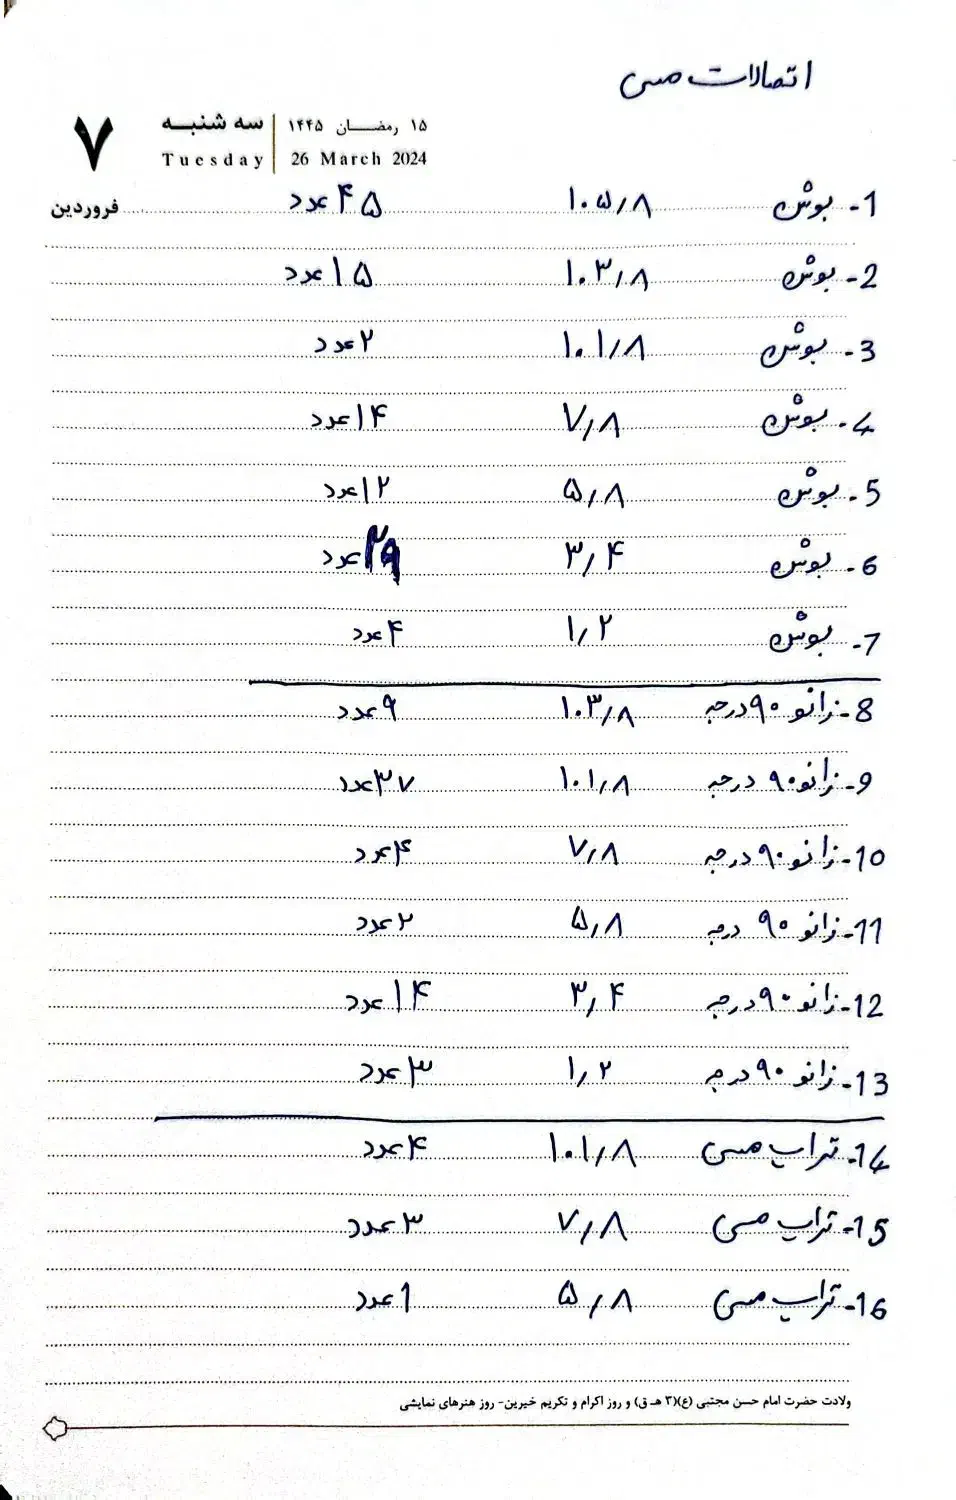 اتصالات مسی
۷ سه شنبه ۱۵ رمضان ۱۴۴۵
Tuesday 26 March 2024
فروردین
1- بوش ۱۰۵/۸ ۴۵ عدد
2- بوش ۱۰۳/۸ ۱۵ عدد
3- بوش ۱۰۱/۸ ۲ عدد
4- بوش ۷/۸ ۱۴ عدد
5- بوش ۵/۸ ۱۲ عدد
6- بوش ۳/۴ عدد
7- بوش ۱/۲ ۴ عدد
8- زانو ۹۰ درجه ۱۰۳/۸ ۹ عدد
9- زانو ۹۰ درجه ۱۰۱/۸ ۳۷ عدد
10- زانو ۹۰ درجه ۷/۸ ۴ عدد
11- زانو ۹۰ درجه ۵/۸ ۲ عدد
12- زانو ۹۰ درجه ۳/۴ ۱۴ عدد
13- زانو ۹۰ درجه ۱/۲ ۳ عدد
14- تراپ مسی ۱۰۱/۸ ۴ عدد
15- تراپ مسی ۷/۸ ۳ عدد
16- تراپ مسی ۵/۸ ۱ عدد
ولادت حضرت امام حسن مجتبی (ع)(۳ هـ ق) و روز اکرام و تکریم خیرین- روز هنرهای نمایشی